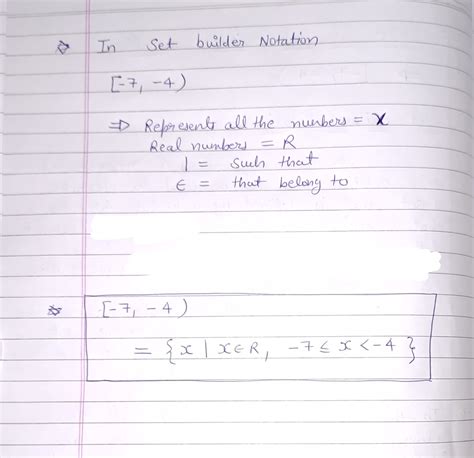 In Set builder Notation
[-7, -4)
⇒ Represents all the numbers = x
Real numbers = R
| = Such that
∈ = that belong to
[-7, -4)
= { x | x∈R, -7 ≤ x < -4 }